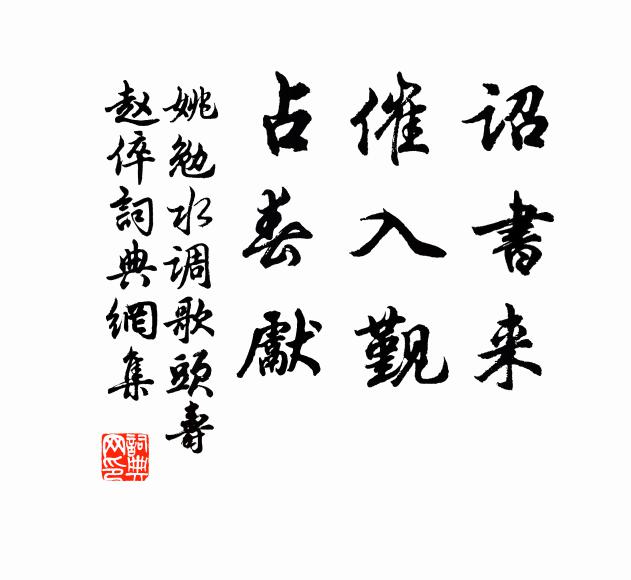 诏書来
催入覲
占春獻
姚勉水调歌頭壽
赵倅詞典網集
詞典
网印